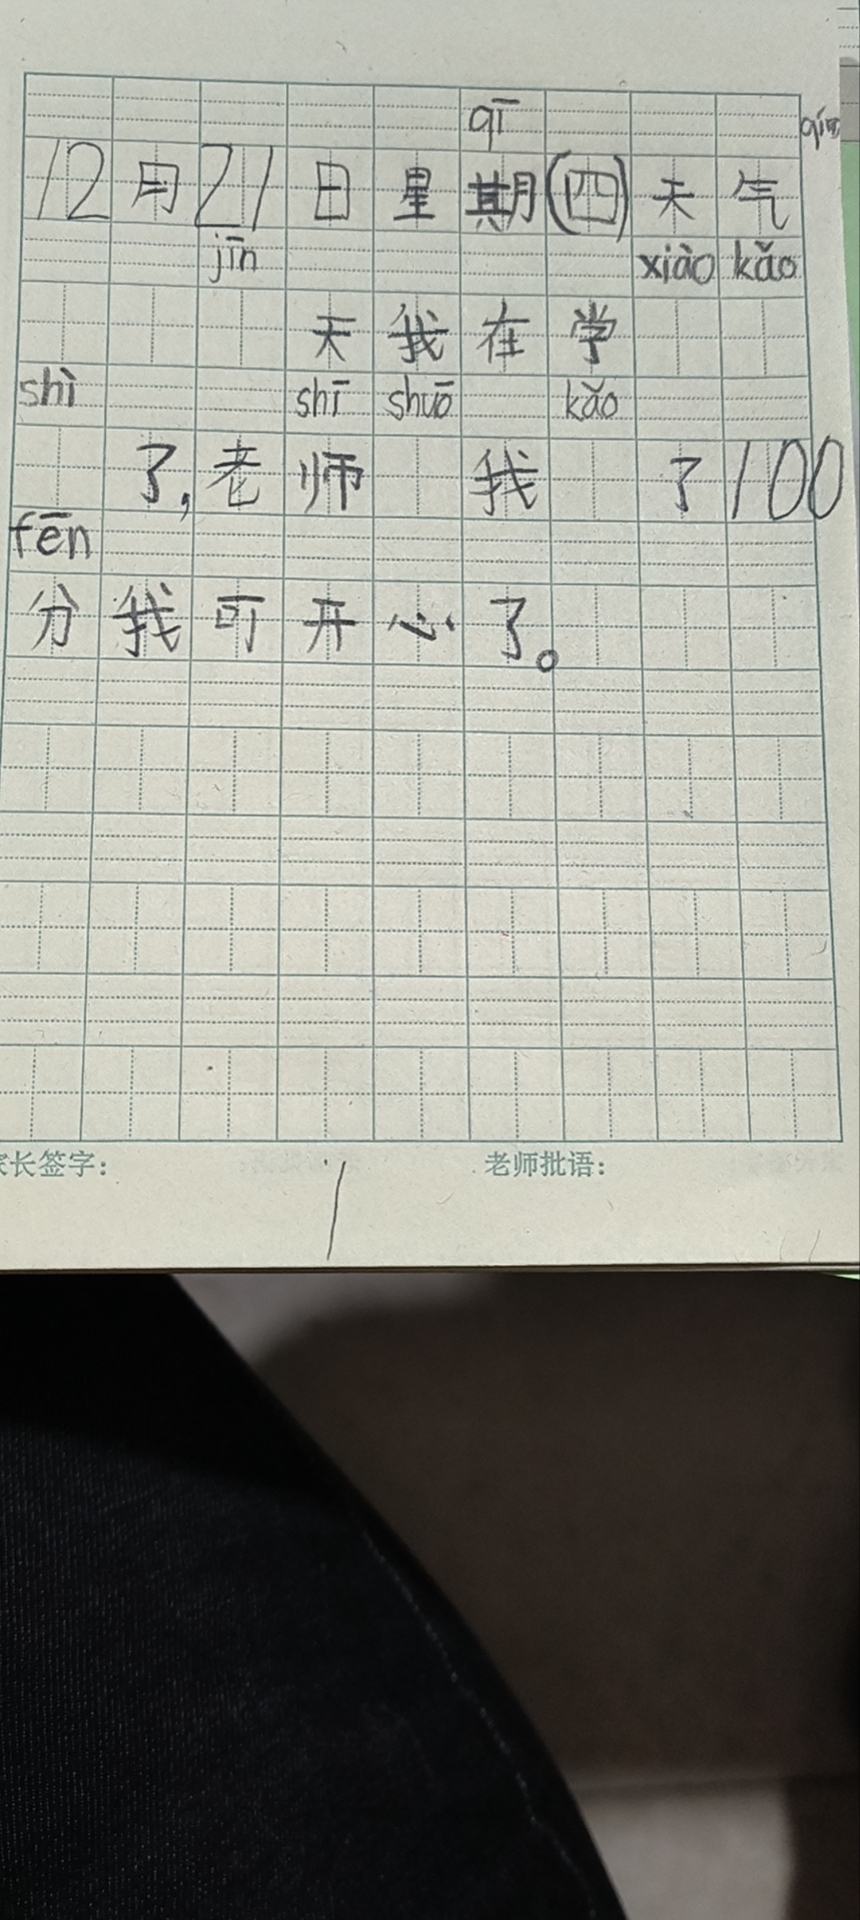 qī qíng
12月21日星期(四)天气
jīn xiào kǎo
天我在学
shì shī shuō kǎo
了,老师 我 了100
fēn
分我可开心了。
家长签字: 老师批语: